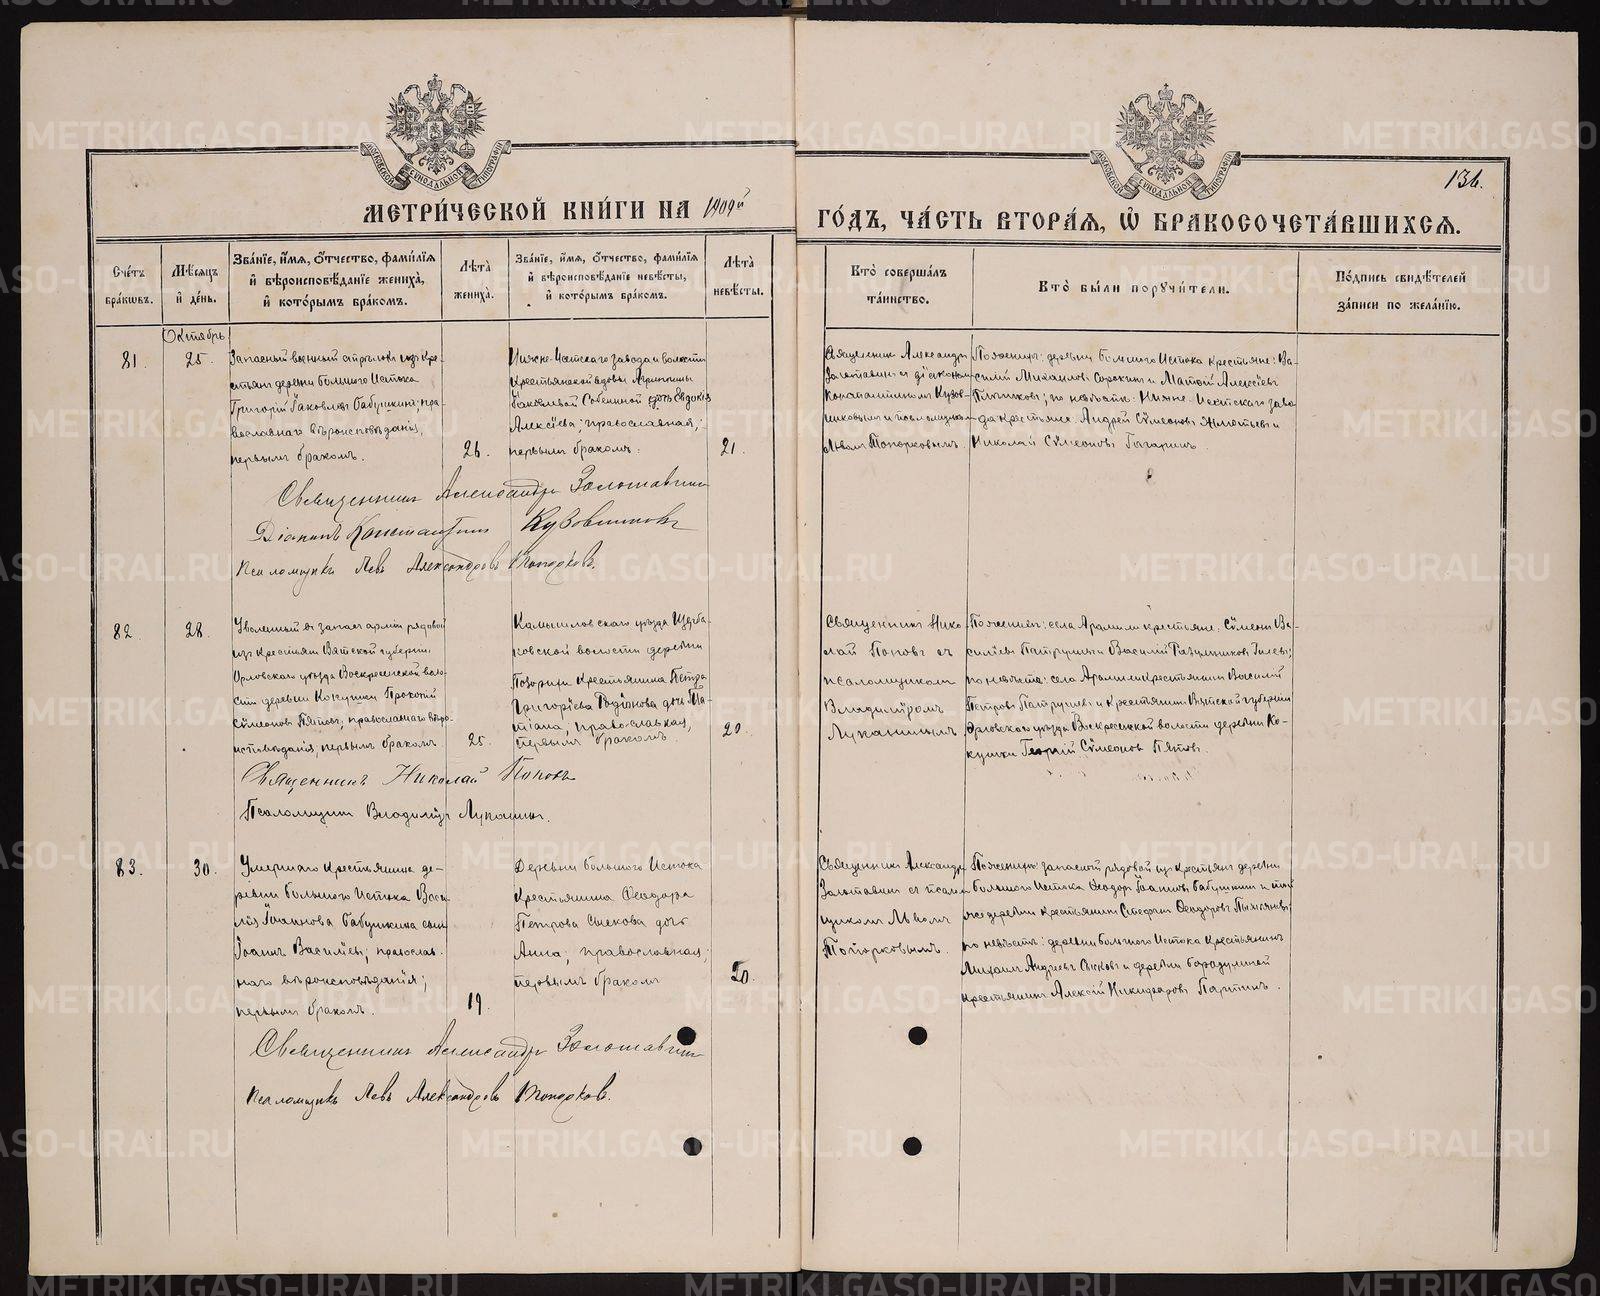 МОСКОВСКОЙ СУНОДАЛЬНОЙ ТИПОГРАФІИ
МОСКОВСКОЙ СУНОДАЛЬНОЙ ТИПОГРАФІИ
136.
МЕТРИЧЕСКОЙ КНИГИ НА 1909й
ГОДЪ, ЧАСТЬ ВТОРАЯ, Ѡ БРАКОСОЧЕТАВШИХСЯ.
Счетъ браковъ.
Мѣсяцъ и день.
Званіе, имя, отчество, фамилія и вѣроисповѣданіе жениха, и которымъ бракомъ.
Лѣта жениха.
Званіе, имя, отчество, фамилія и вѣроисповѣданіе невѣсты, и которымъ бракомъ.
Лѣта невѣсты.
Кто совершалъ таинство.
Кто были поручители.
Подпись свидѣтелей записи по желанію.
Октябрь
81.
25.
Запасный военный стрѣлокъ изъ кре-
стьянъ деревни Большого Истока
Григорій Іаковлевъ Бабушкинъ, пра-
вославнаго вѣроисповѣданія,
первымъ бракомъ.
26.
Нижне-Исетскаго завода и волости
крестьянской вдовы Агриппины
Іаковлевой Собениной дочь Евдокія
Алексѣева; православная;
первымъ бракомъ.
21.
Священникъ Александръ
Золотавинъ съ діакономъ
Константиномъ Кузов-
никовымъ и псаломщикомъ
Львомъ Топорковымъ.
По женихѣ: деревни Большого Истока крестьяне: Ва-
силій Михаиловъ Сорокинъ и Матѳій Алексѣевъ
по невѣстѣ: Нижне-Исетскаго заво-
да крестьяне Андрей Сѵмеоновъ
Николай Сѵмеоновъ Гагаринъ.
Священникъ Александръ Золотавинъ
Діаконъ Константинъ Кузовниковъ
Псаломщикъ Левъ Александровъ Топорковъ.
82.
28.
Уволенный въ запасъ арміи рядовой
изъ крестьянъ Вятской губерніи
Орловскаго уѣзда Воскресенской воло-
сти деревни Кокушки Прокопій
Сѵмеоновъ Пятовъ, православнаго вѣро-
исповѣданія, первымъ бракомъ
25.
Камышловскаго уѣзда Щерба-
ковской волости деревни
крестьянина Петра
Григоріева Родіонова дочь Та-
тіана, православная,
первымъ бракомъ.
20.
Священникъ Нико-
лай Поповъ съ
псаломщикомъ
Владиміромъ
Луканинымъ
По женихѣ: села Арамили крестьяне: Сѵмеонъ Ва-
силіевъ Патрушевъ и Василій
по невѣстѣ: села Арамили крестьянинъ Василій
Петровъ Патрушевъ и крестьянинъ Вятской губерніи
Орловскаго уѣзда Воскресенской волости деревни Ко-
кушки Георгій Сѵмеоновъ Пятовъ.
Священникъ Николай Поповъ
Псаломщикъ Владиміръ Луканинъ.
83.
30.
Умершаго крестьянина де-
ревни Большого Истока Васи-
лія Іоаннова Бабушкина сынъ
Іоаннъ Василіевъ; православ-
наго вѣроисповѣданія;
первымъ бракомъ.
19.
Деревни Большого Истока
крестьянина Ѳеодора
Петрова Сыскова дочь
Анна; православная;
первымъ бракомъ
20.
Священникъ Александръ
Золотавинъ съ псалом-
щикомъ Львомъ
Топорковымъ.
По женихѣ: запасной рядовой изъ крестьянъ деревни
Большого Истока Ѳеодоръ Іоанновъ Бабушкинъ и той
же деревни крестьянинъ Стефанъ Ѳеодоровъ
по невѣстѣ: деревни Большого Истока крестьянинъ
Михаилъ Андреевъ Сысковъ и деревни
крестьянинъ Алексій Никифоровъ Партинъ.
Священникъ Александръ Золотавинъ
Псаломщикъ Левъ Александровъ Топорковъ.
METRIKI.GASO-URAL.RU